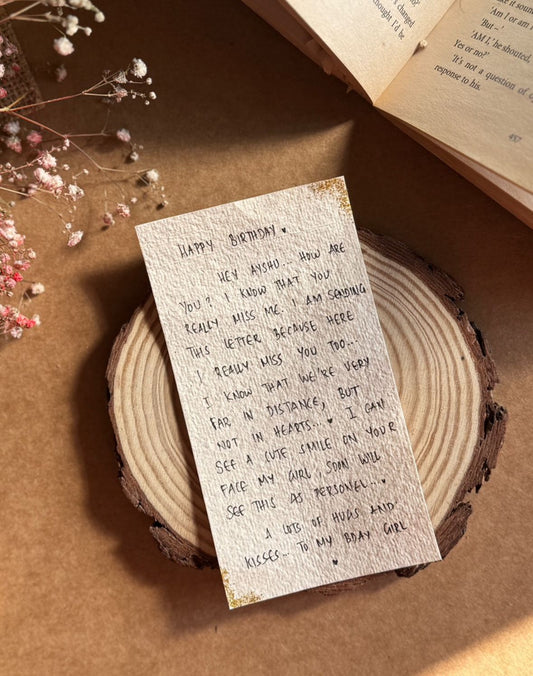 HAPPY BIRTHDAY ♥
HEY AYSHU... HOW ARE
YOU? I KNOW THAT YOU
REALLY MISS ME. I AM SENDING
THIS LETTER BECAUSE HERE
I REALLY MISS YOU TOO...
I KNOW THAT WE'RE VERY
FAR IN DISTANCE, BUT
NOT IN HEARTS... ♥ I CAN
SEE A CUTE SMILE ON YOUR
FACE MY GIRL, SOON WILL
SEE THIS AS PERSONEL... ♥
A LOTS OF HUGS AND
KISSES... TO MY BDAY GIRL
♥
changed
thought I'd be
'Am I or am I
But –'
'AM I,' he shouted.
Yes or no?'
'It's not a question of
response to his.
487